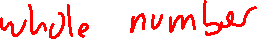 whole number